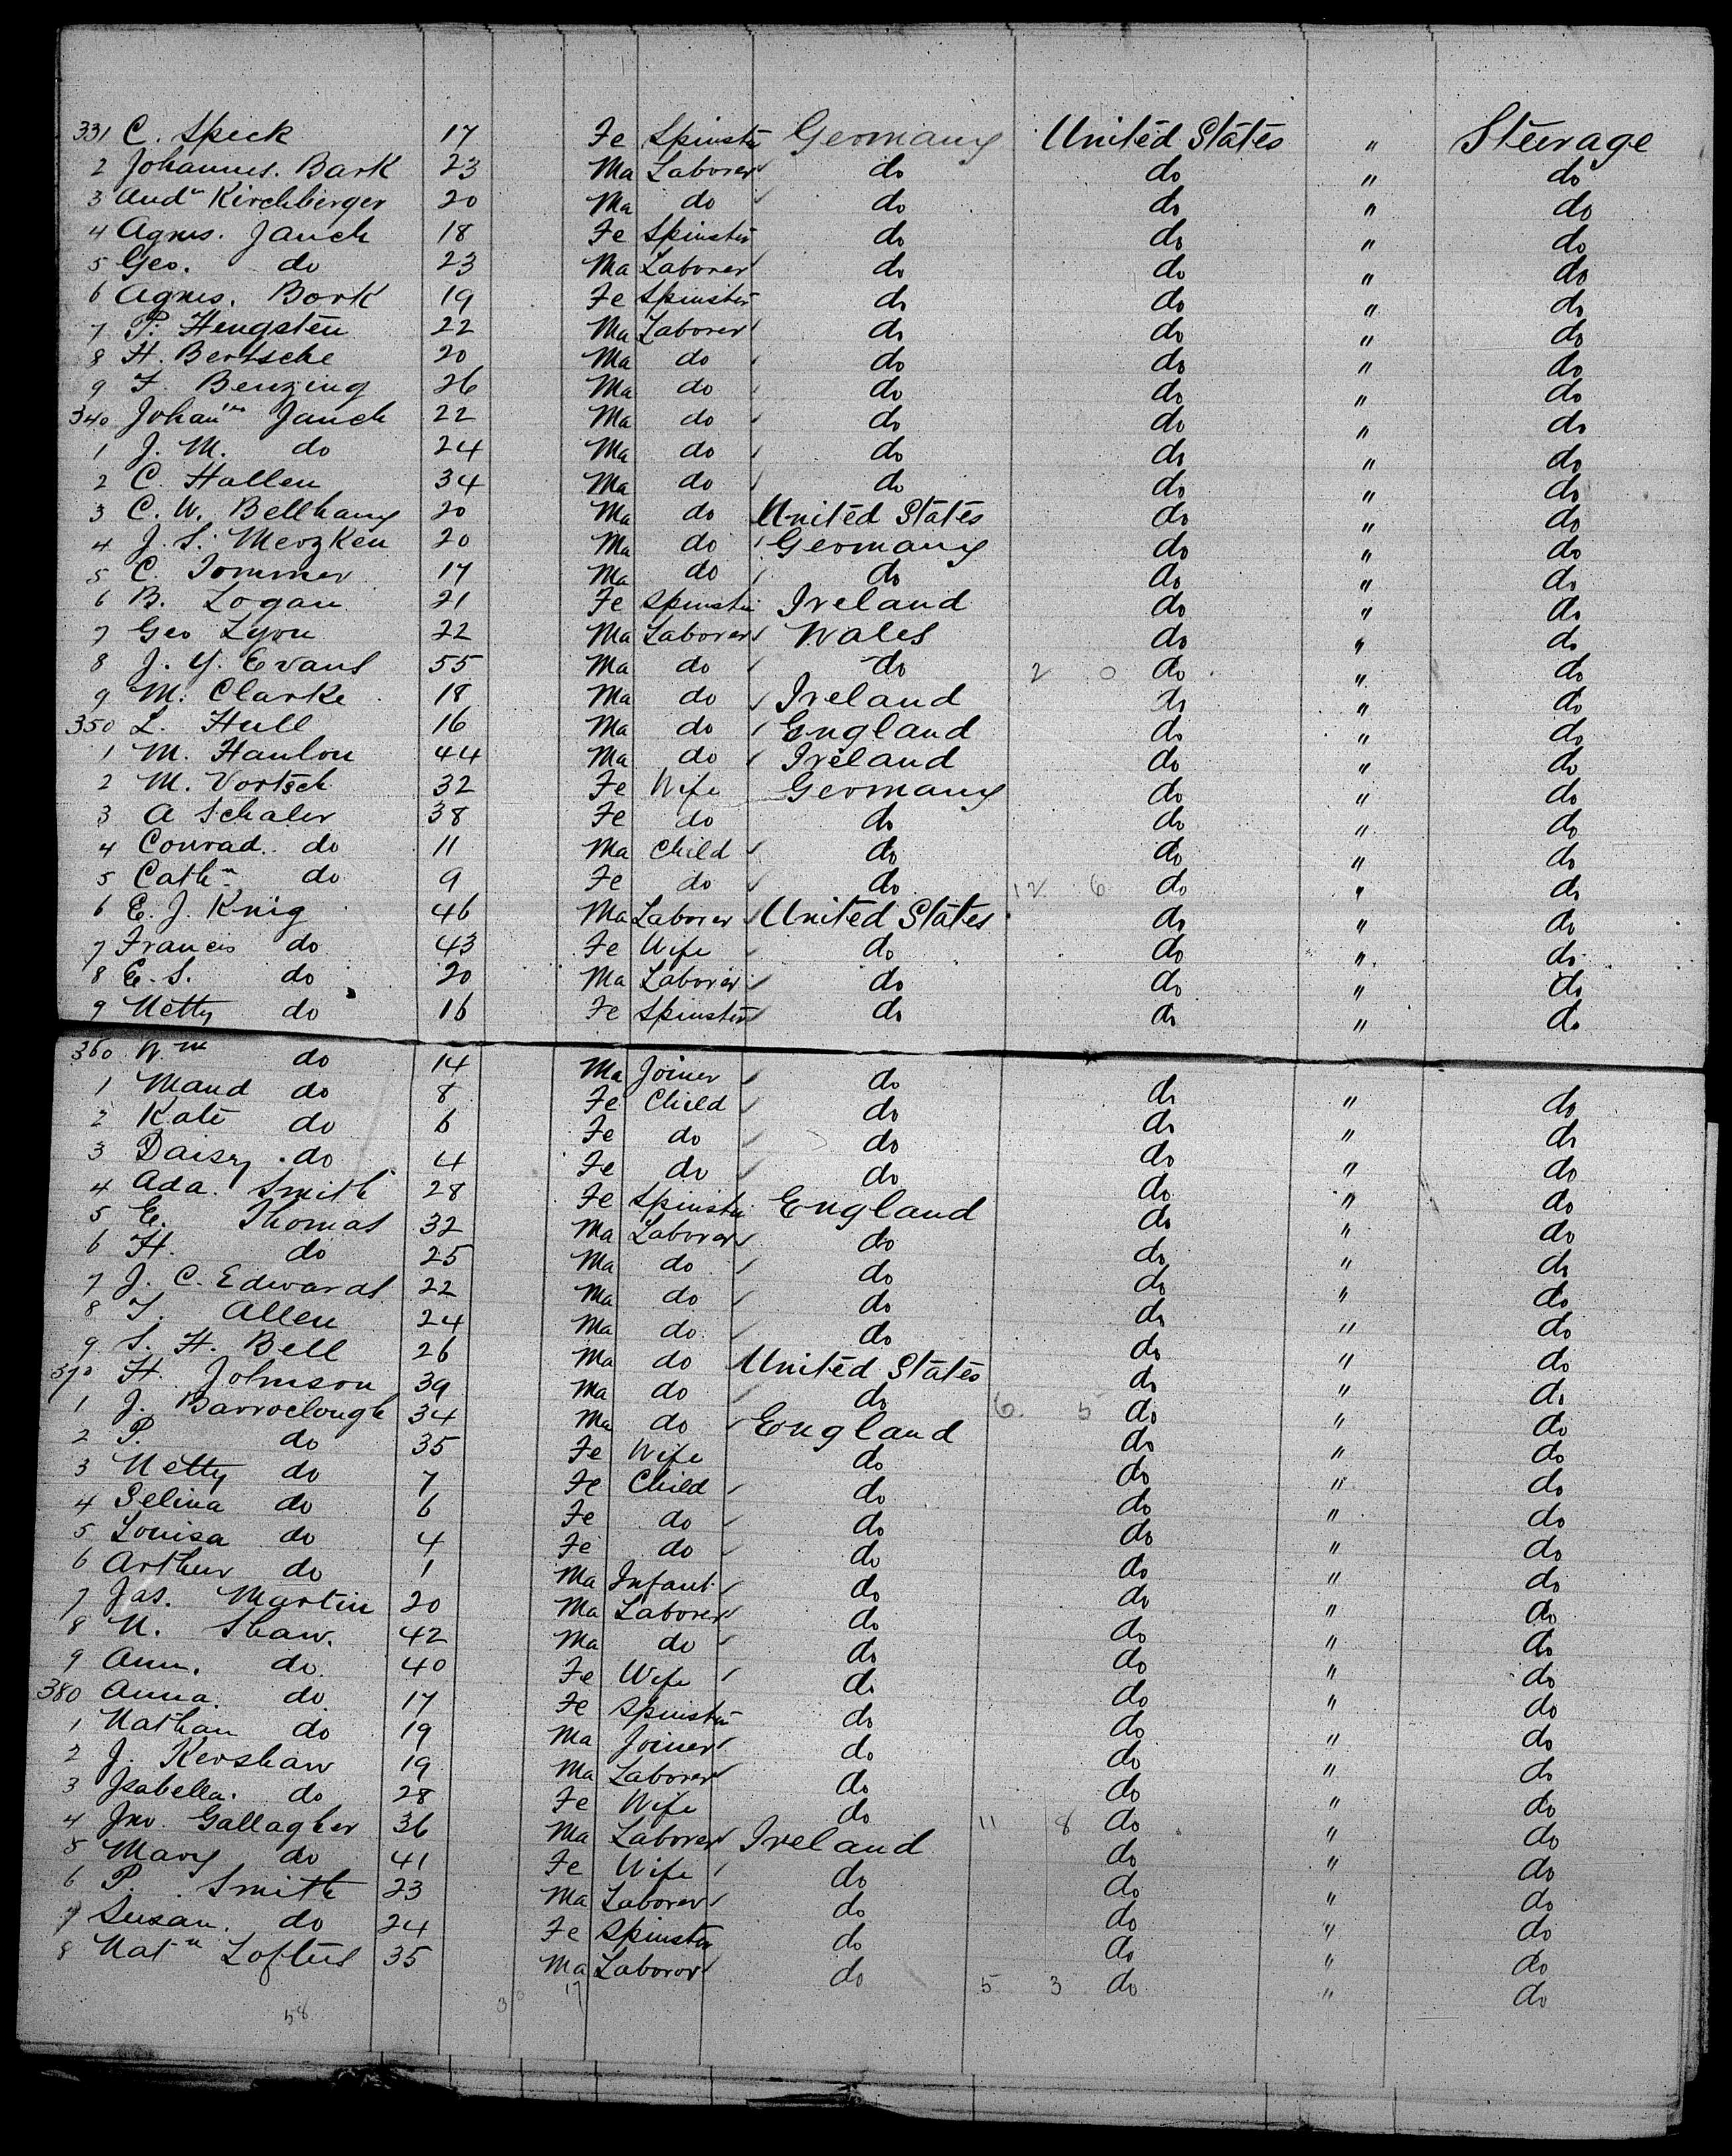 331 C. Speck 17 Fe Spinster Germany United States " Steerage
2 Johannes. Bark 23 Ma Laborer do do " do
3 Andw Kirchberger 20 Ma do do do " do
4 Agnes. Jauch 18 Fe Spinster do do " do
5 Geo. do 23 Ma Laborer do do " do
6 Agnes. Bork 19 Fe Spinster do do " do
7 P. Hengsten 22 Ma Laborer do do " do
8 H. Bertsche 20 Ma do do do " do
9 F. Benzing 26 Ma do do do " do
340 Johan Jauch 22 Ma do do do " do
1 J. M. do 24 Ma do do do " do
2 C. Hallen 34 Ma do do do " do
3 C. W. Bellhany 20 Ma do United States do " do
4 J. S. Merzken 20 Ma do Germany do " do
5 C. Tommer 17 Ma do do do " do
6 B. Logan 21 Fe Spinster Ireland do " do
7 Geo Lyon 22 Ma Laborer Wales do " do
8 J. Y. Evans 55 Ma do do 2 0 do " do
9 M. Clarke 18 Ma do Ireland do " do
350 L. Hull 16 Ma do England do " do
1 M. Hanlon 44 Ma do Ireland do " do
2 M. Vortsch 32 Fe Wife Germany do " do
3 A Schaler 38 Fe do do do " do
4 Conrad. do 11 Ma Child do do " do
5 Cathn do 9 Fe do do 12 6 do " do
6 E. J. Knig 46 Ma Laborer United States do " do
7 Francis do 43 Fe Wife do do " do
8 E. S. do 20 Ma Laborer do do " do
9 Netty do 16 Fe Spinster do do " do
360 Wm do 14 Ma Joiner do do " do
1 Maud do 8 Fe Child do do " do
2 Kate do 6 Fe do do do " do
3 Daisy do 4 Fe do do do " do
4 Ada. Smith 28 Fe Spinster England do " do
5 E. Thomas 32 Ma Laborer do do " do
6 H. do 25 Ma do do do " do
7 J. C. Edwards 22 Ma do do do " do
8 T. Allen 24 Ma do do do " do
9 S. H. Bell 26 Ma do United States do " do
370 H. Johnson 39 Ma do do 6. 5 do " do
1 J. Barroclough 34 Ma do England do " do
2 P. do 35 Fe Wife do do " do
3 Netty do 7 Fe Child do do " do
4 Selina do 6 Fe do do do " do
5 Louisa do 4 Fe do do do " do
6 Arthur do 1 Ma Infant do do " do
7 Jas. Martin 20 Ma Laborer do do " do
8 N. Shaw. 42 Ma do do do " do
9 Ann. do. 40 Fe Wife do do " do
380 Anna. do 17 Fe Spinster do do " do
1 Nathan do 19 Ma Joiner do do " do
2 J. Kershaw 19 Ma Laborer do do " do
3 Isabella. do 28 Fe Wife do 11 8 do " do
4 Jno. Gallagher 36 Ma Laborer Ireland do " do
5 Mary do 41 Fe Wife do do " do
6 P. Smith 23 Ma Laborer do do " do
7 Susan. do 24 Fe Spinster do do " do
8 Natn Loftus 35 Ma Laboror do 5 3 do " do
58 30 17